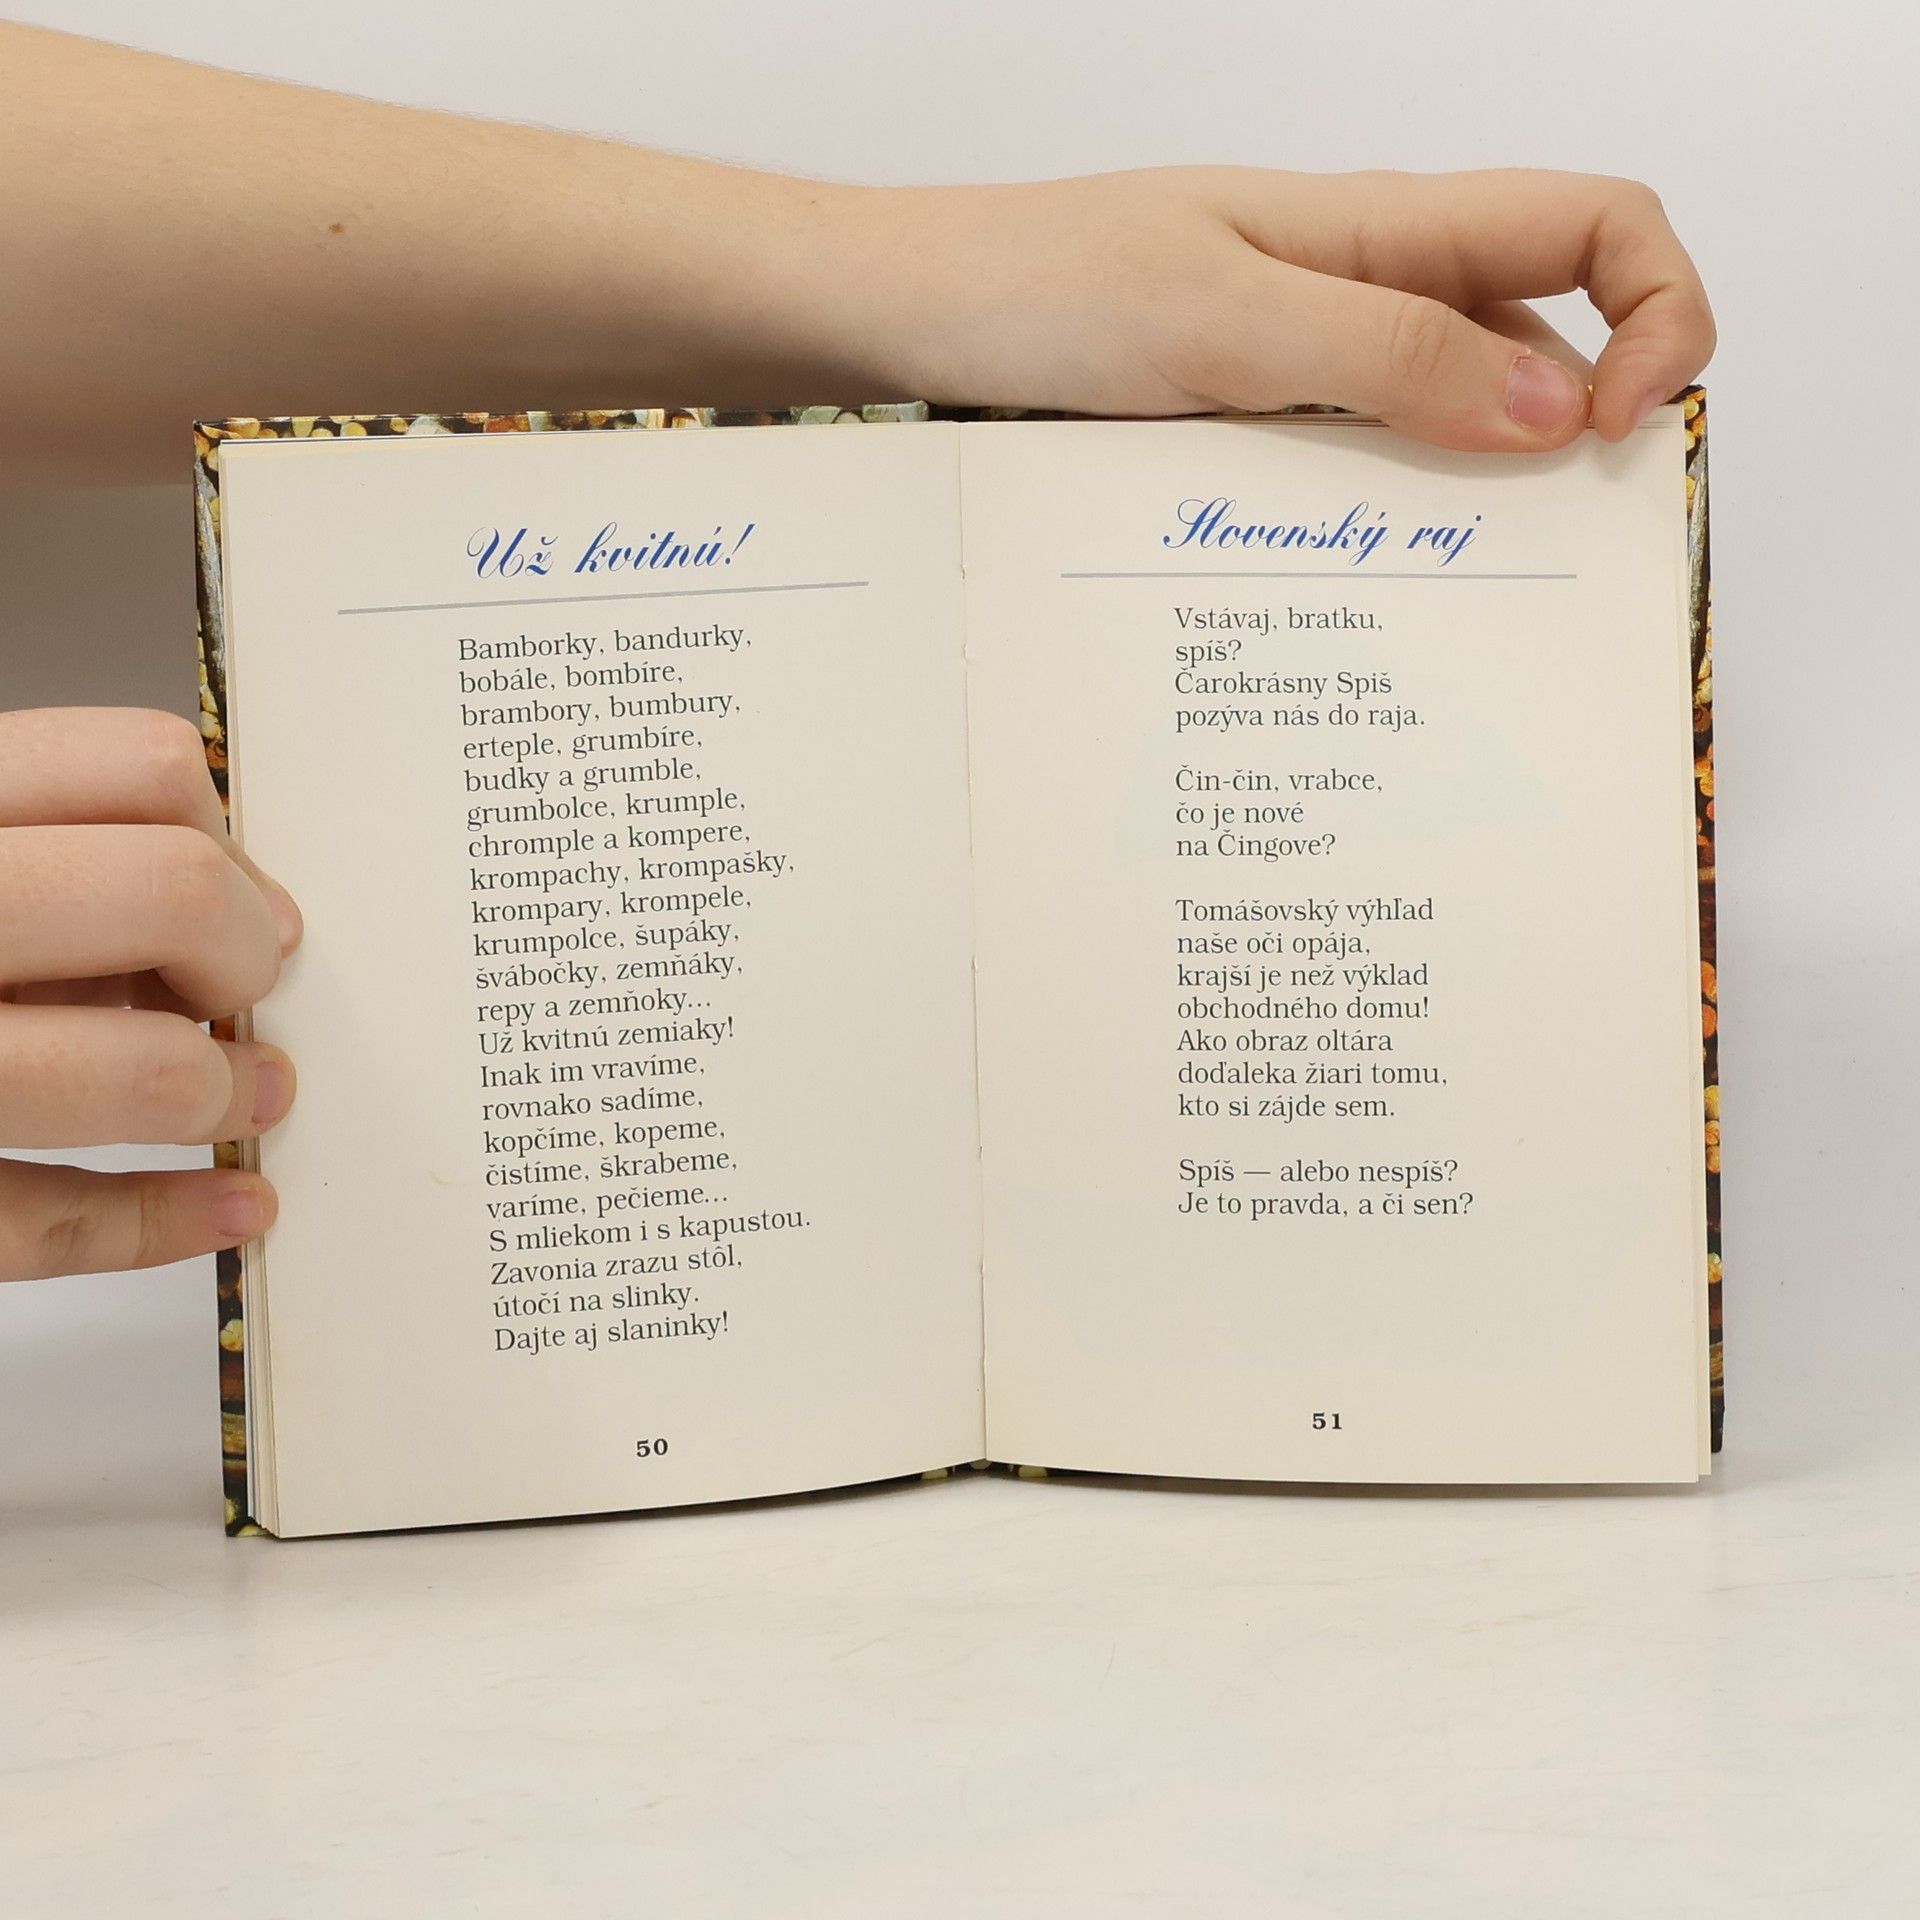 Už kvitnú!
Bamborky, bandurky,
bobále, bombíre,
brambory, bumbury,
erteple, grumbíre,
budky a grumble,
grumbolce, krumple,
chromple a kompere,
krompachy, krompašky,
krompary, krompele,
krumpolce, šupáky,
švábočky, zemňáky,
repy a zemňoky...
Už kvitnú zemiaky!
Inak im vravíme,
rovnako sadíme,
kopčíme, kopeme,
čistíme, škrabeme,
varíme, pečieme...
S mliekom i s kapustou.
Zavonia zrazu stôl,
útočí na slinky.
Dajte aj slaninky!
50
Slovenský raj
Vstávaj, bratku,
spíš?
Čarokrásny Spiš
pozýva nás do raja.
Čin-čin, vrabce,
čo je nové
na Čingove?
Tomášovský výhľad
naše oči opája,
krajší je než výklad
obchodného domu!
Ako obraz oltára
doďaleka žiari tomu,
kto si zájde sem.
Spíš — alebo nespíš?
Je to pravda, a či sen?
51